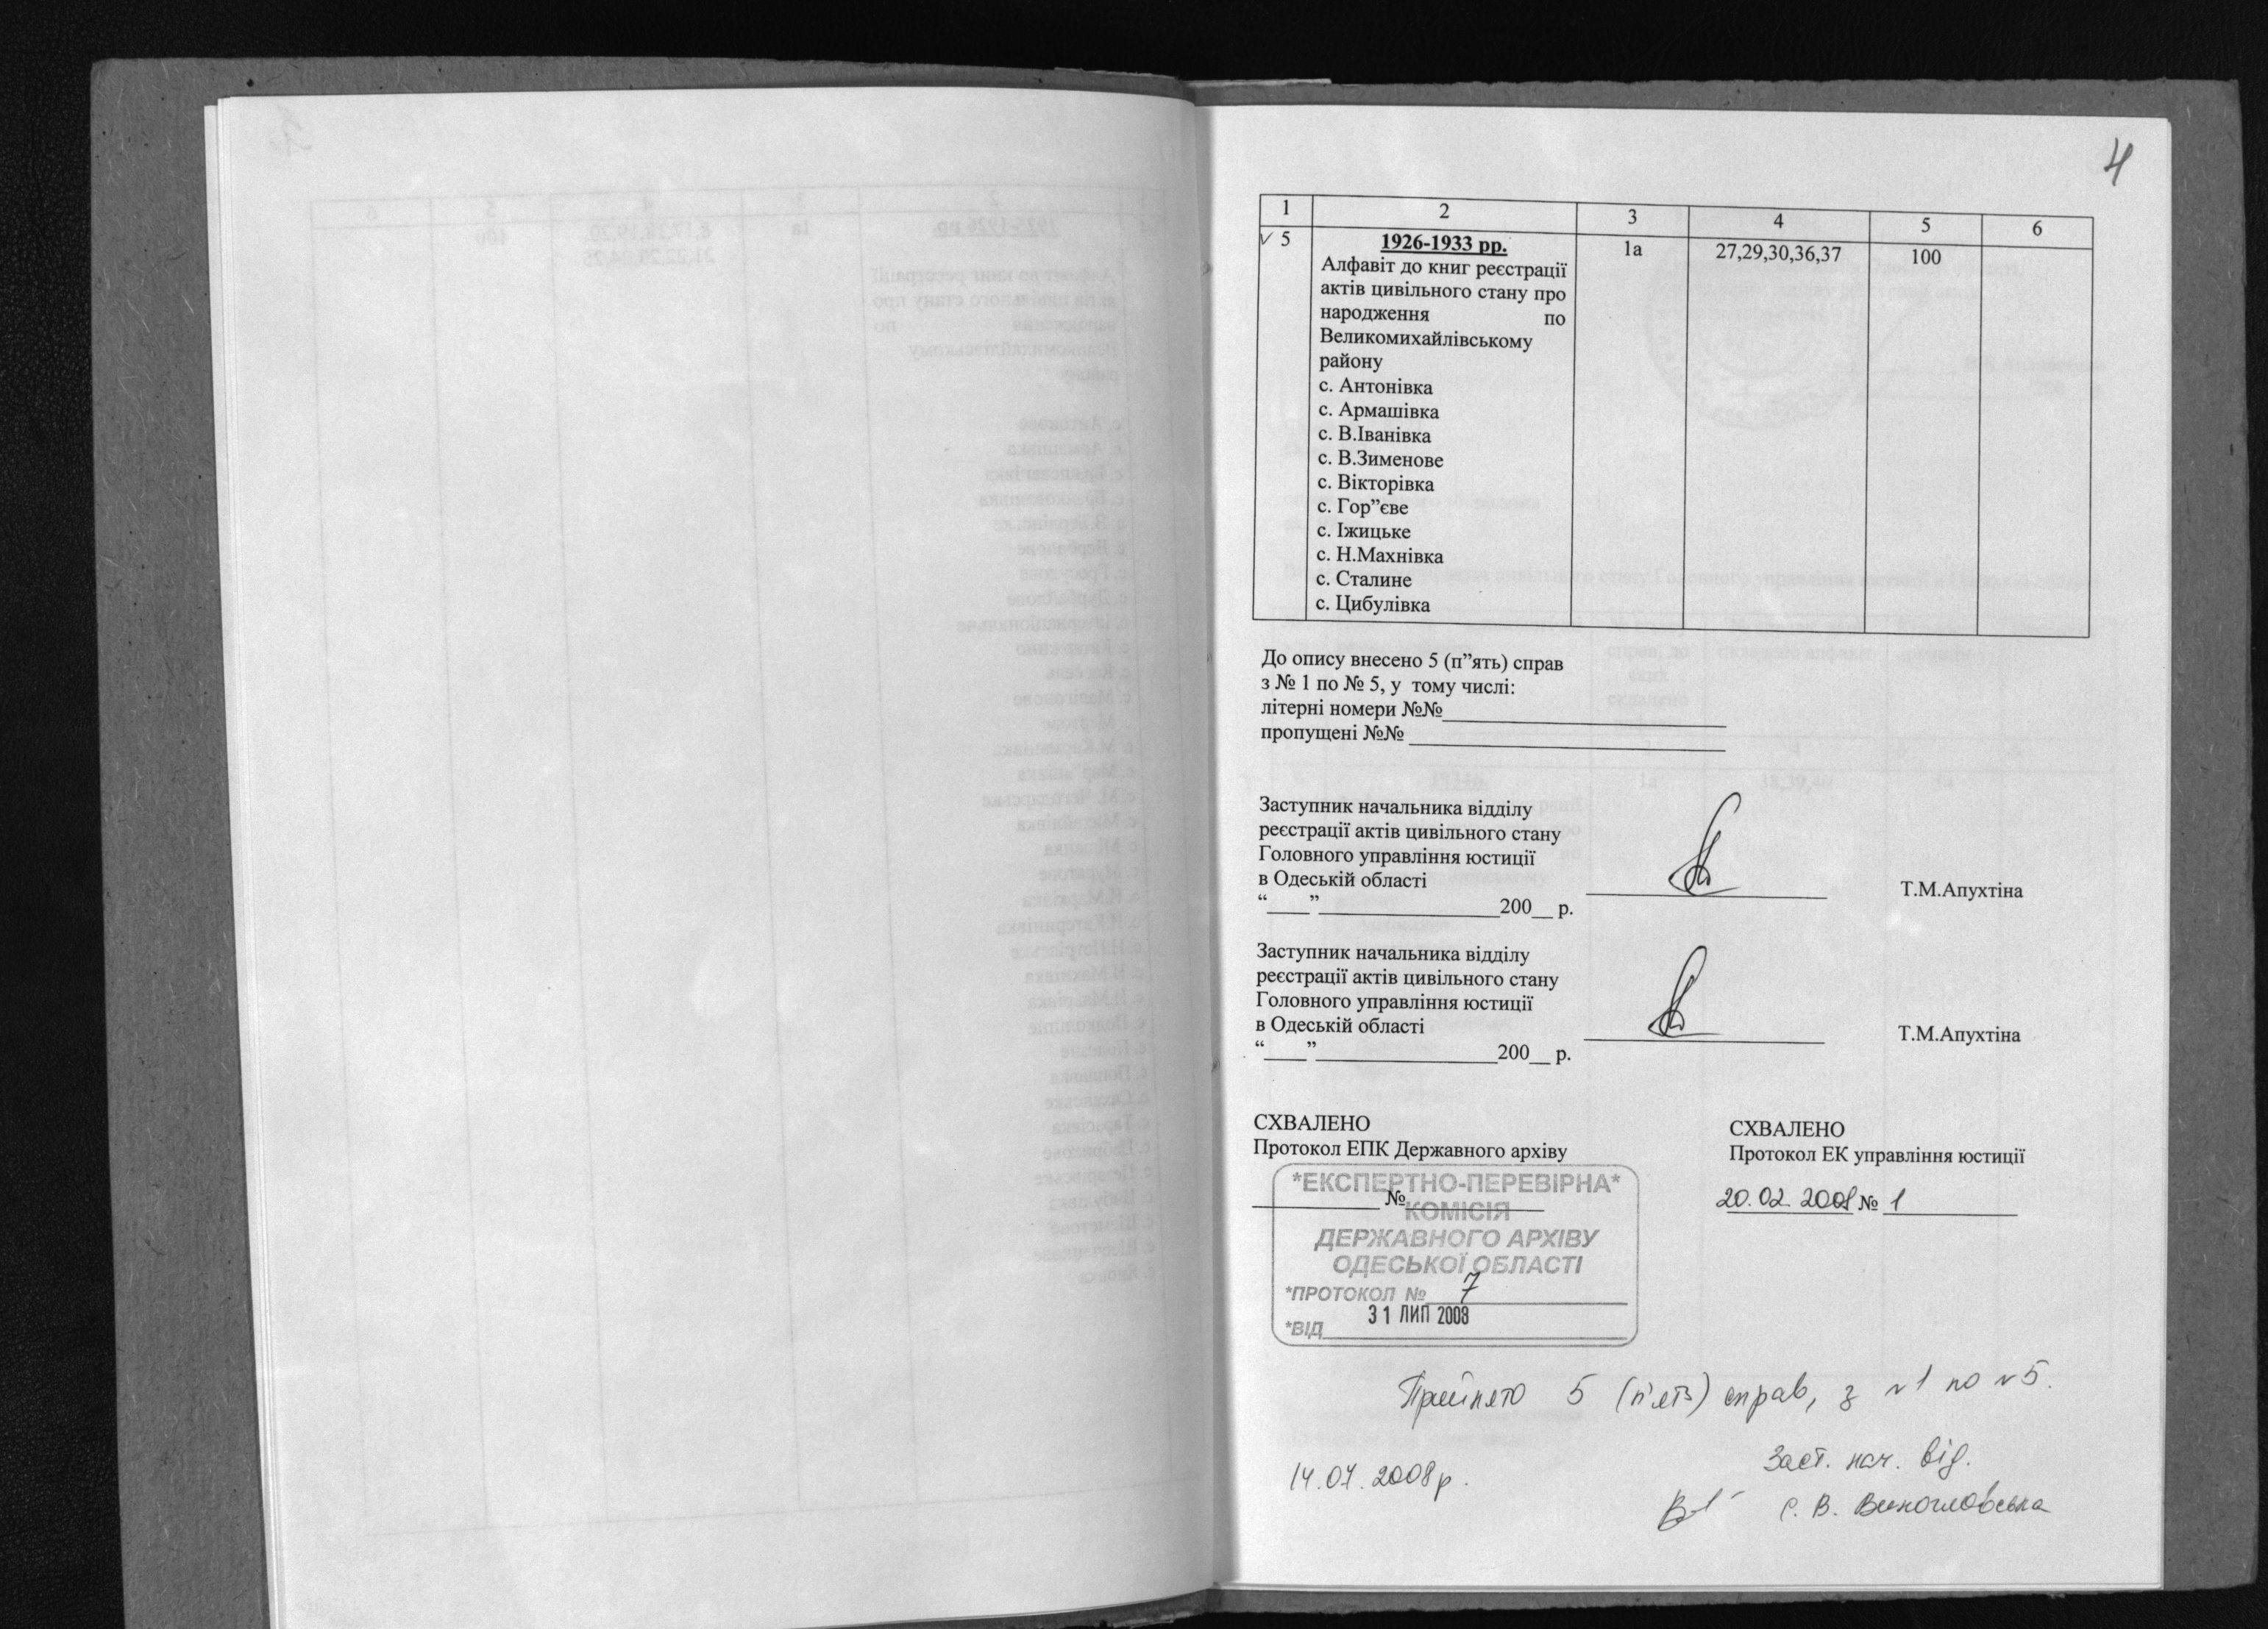 4
1 2 3 4 5 6
✓ 5 1926-1933 рр. 1а 27,29,30,36,37 100
Алфавіт до книг реєстрації
актів цивільного стану про
народження по
Великомихайлівському
району
с. Антонівка
с. Армашівка
с. В.Іванівка
с. В.Зименове
с. Вікторівка
с. Гор”єве
с. Іжицьке
с. Н.Махнівка
с. Сталине
с. Цибулівка
До опису внесено 5 (п”ять) справ
з № 1 по № 5, у тому числі:
літерні номери №№
пропущені №№
Заступник начальника відділу
реєстрації актів цивільного стану
Головного управління юстиції
в Одеській області
Т.М.Апухтіна
“____”_________________200__ р.
Заступник начальника відділу
реєстрації актів цивільного стану
Головного управління юстиції
в Одеській області
Т.М.Апухтіна
“____”_________________200__ р.
СХВАЛЕНО
Протокол ЕПК Державного архіву
____________ №____________
*ЕКСПЕРТНО-ПЕРЕВІРНА*
КОМІСІЯ
ДЕРЖАВНОГО АРХІВУ
ОДЕСЬКОЇ ОБЛАСТІ
*ПРОТОКОЛ № 7
31 ЛИП 2008
*ВІД
СХВАЛЕНО
Протокол ЕК управління юстиції
20.02.2008 № 1
Прийнято 5 (п'ять) справ, з №1 по №5.
Заст. нач. від.
14.07.2008р.
С. В. Виногловська